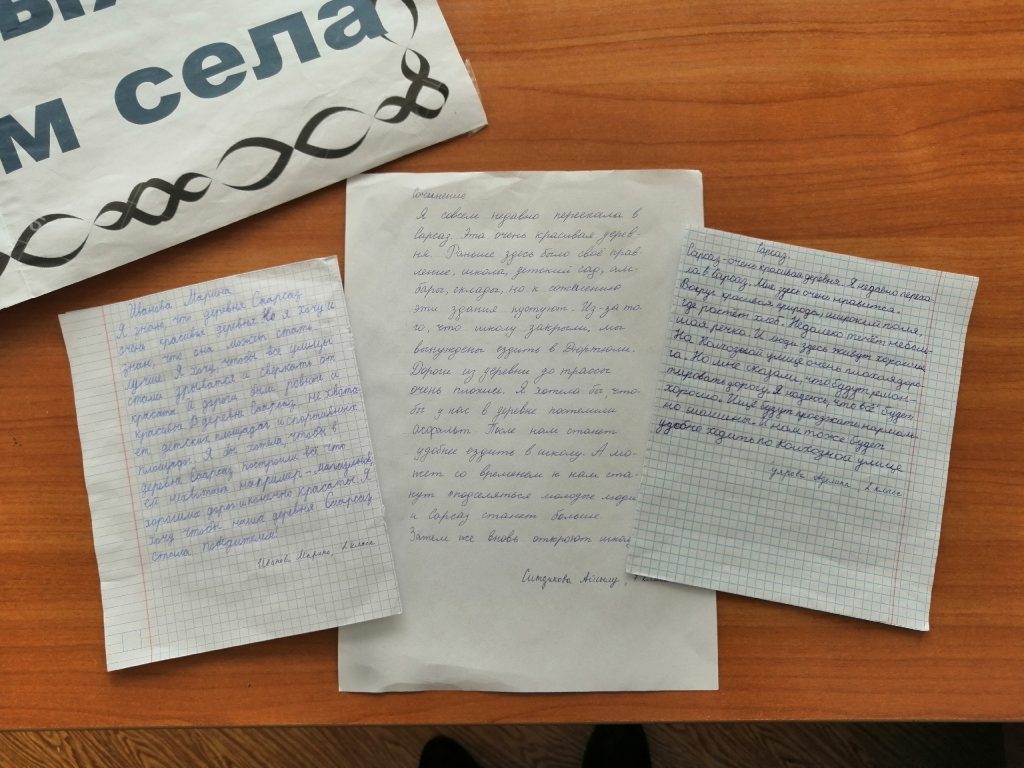 м села
Иванова Марина
Я знаю, что деревня Старсаз
очень красивая деревня. Но я хочу и
знаю, что она может стать
лучше. Я хочу, чтобы все улицы
стала друваться и сверкать от
красоты. И дороги были ровные и
красивы. В деревне Старсаз не хвата-
ет детских площадок и спортивных
площадок. Я бы хотела чтобы в
деревне Старсаз построили всё что
ей нехватало например - магазинов,
хорошими дорог и конечно красоты. Я
хочу чтобы наша деревня Старсаз
стала победителем!
Иванова Марина, 2 класс
Сочинение
Я совсем недавно переехала в
Сарсаз. Эта очень красивая дерев-
ня. Раньше здесь было своё прав-
ление, школа, детский сад, ам-
бары, склады, но к сожалению
эти здания пустуют. Из-за то-
го, что школу закрыли, мы
вынуждены ездить в Дюртюли.
Дороги из деревни до трассы
очень плохие. Я хотела бы что-
бы у нас в деревне постелили
асфальт. После нам станет
удобнее ездить в школу. А мо-
жет со временем к нам ста-
нут подселяться молодые люди
и Сарсаз станет больше
Затем же вновь откроют школу
Ситдикова Айсылу,
Сарсаз.
Сарсаз - очень красивая деревня. Я недавно перееха-
ла в Сарсаз. Мне здесь очень нравится.
Вокруг красивая природа, широкий поля,
где растёт хлеб. Недалеко течёт неболь-
шая речка. И люди здесь живут хорошие.
На Колхозной улице очень плохая доро-
га. Но мне сказали, что будут ремон-
тировать дорогу. Я надеюсь что всё будет
хорошо. И ещё будут проезжать нормаль-
но машины. И нам тоже будет
удобно ходить по Колхозной улице
2 класс